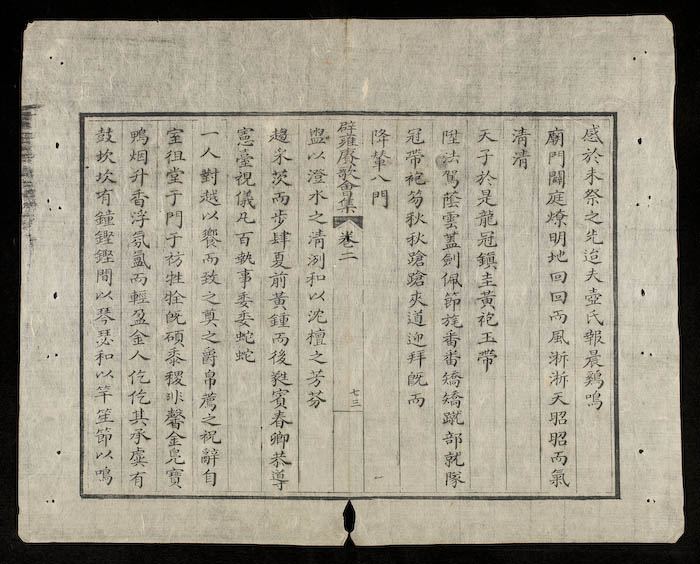 感於未祭之先迨夫壺氏報晨鷄鳴
廟門闢庭燎明地回回而風浙浙天昭昭而氣
清清
天子於是龍冠鎮圭黃袍玉帶
陞法駕蔭雲蓋劍佩節旄番番矯矯蹴部就隊
冠帶袍笏秋秋蹌蹌夾道迎拜既而
降輦入門
辟雍賡歌會集 卷二
七三
盥以澄水之清洌和以沈檀之芳芬
趨采茨而步肆夏前黃鍾而後蕤賓春卿恭導
憲臺視儀凡百執事委委蛇蛇
一人對越以饗而致之奠之爵帛薦之祝辭自
室徂堂于門于祊牲牷既碩黍稷非馨金鳧寶
鴨烟升香浮氛氳而輕盈金人仡仡其承虡有
鼓坎坎有鐘鏗鏗間以琴瑟和以竽笙節以鳴